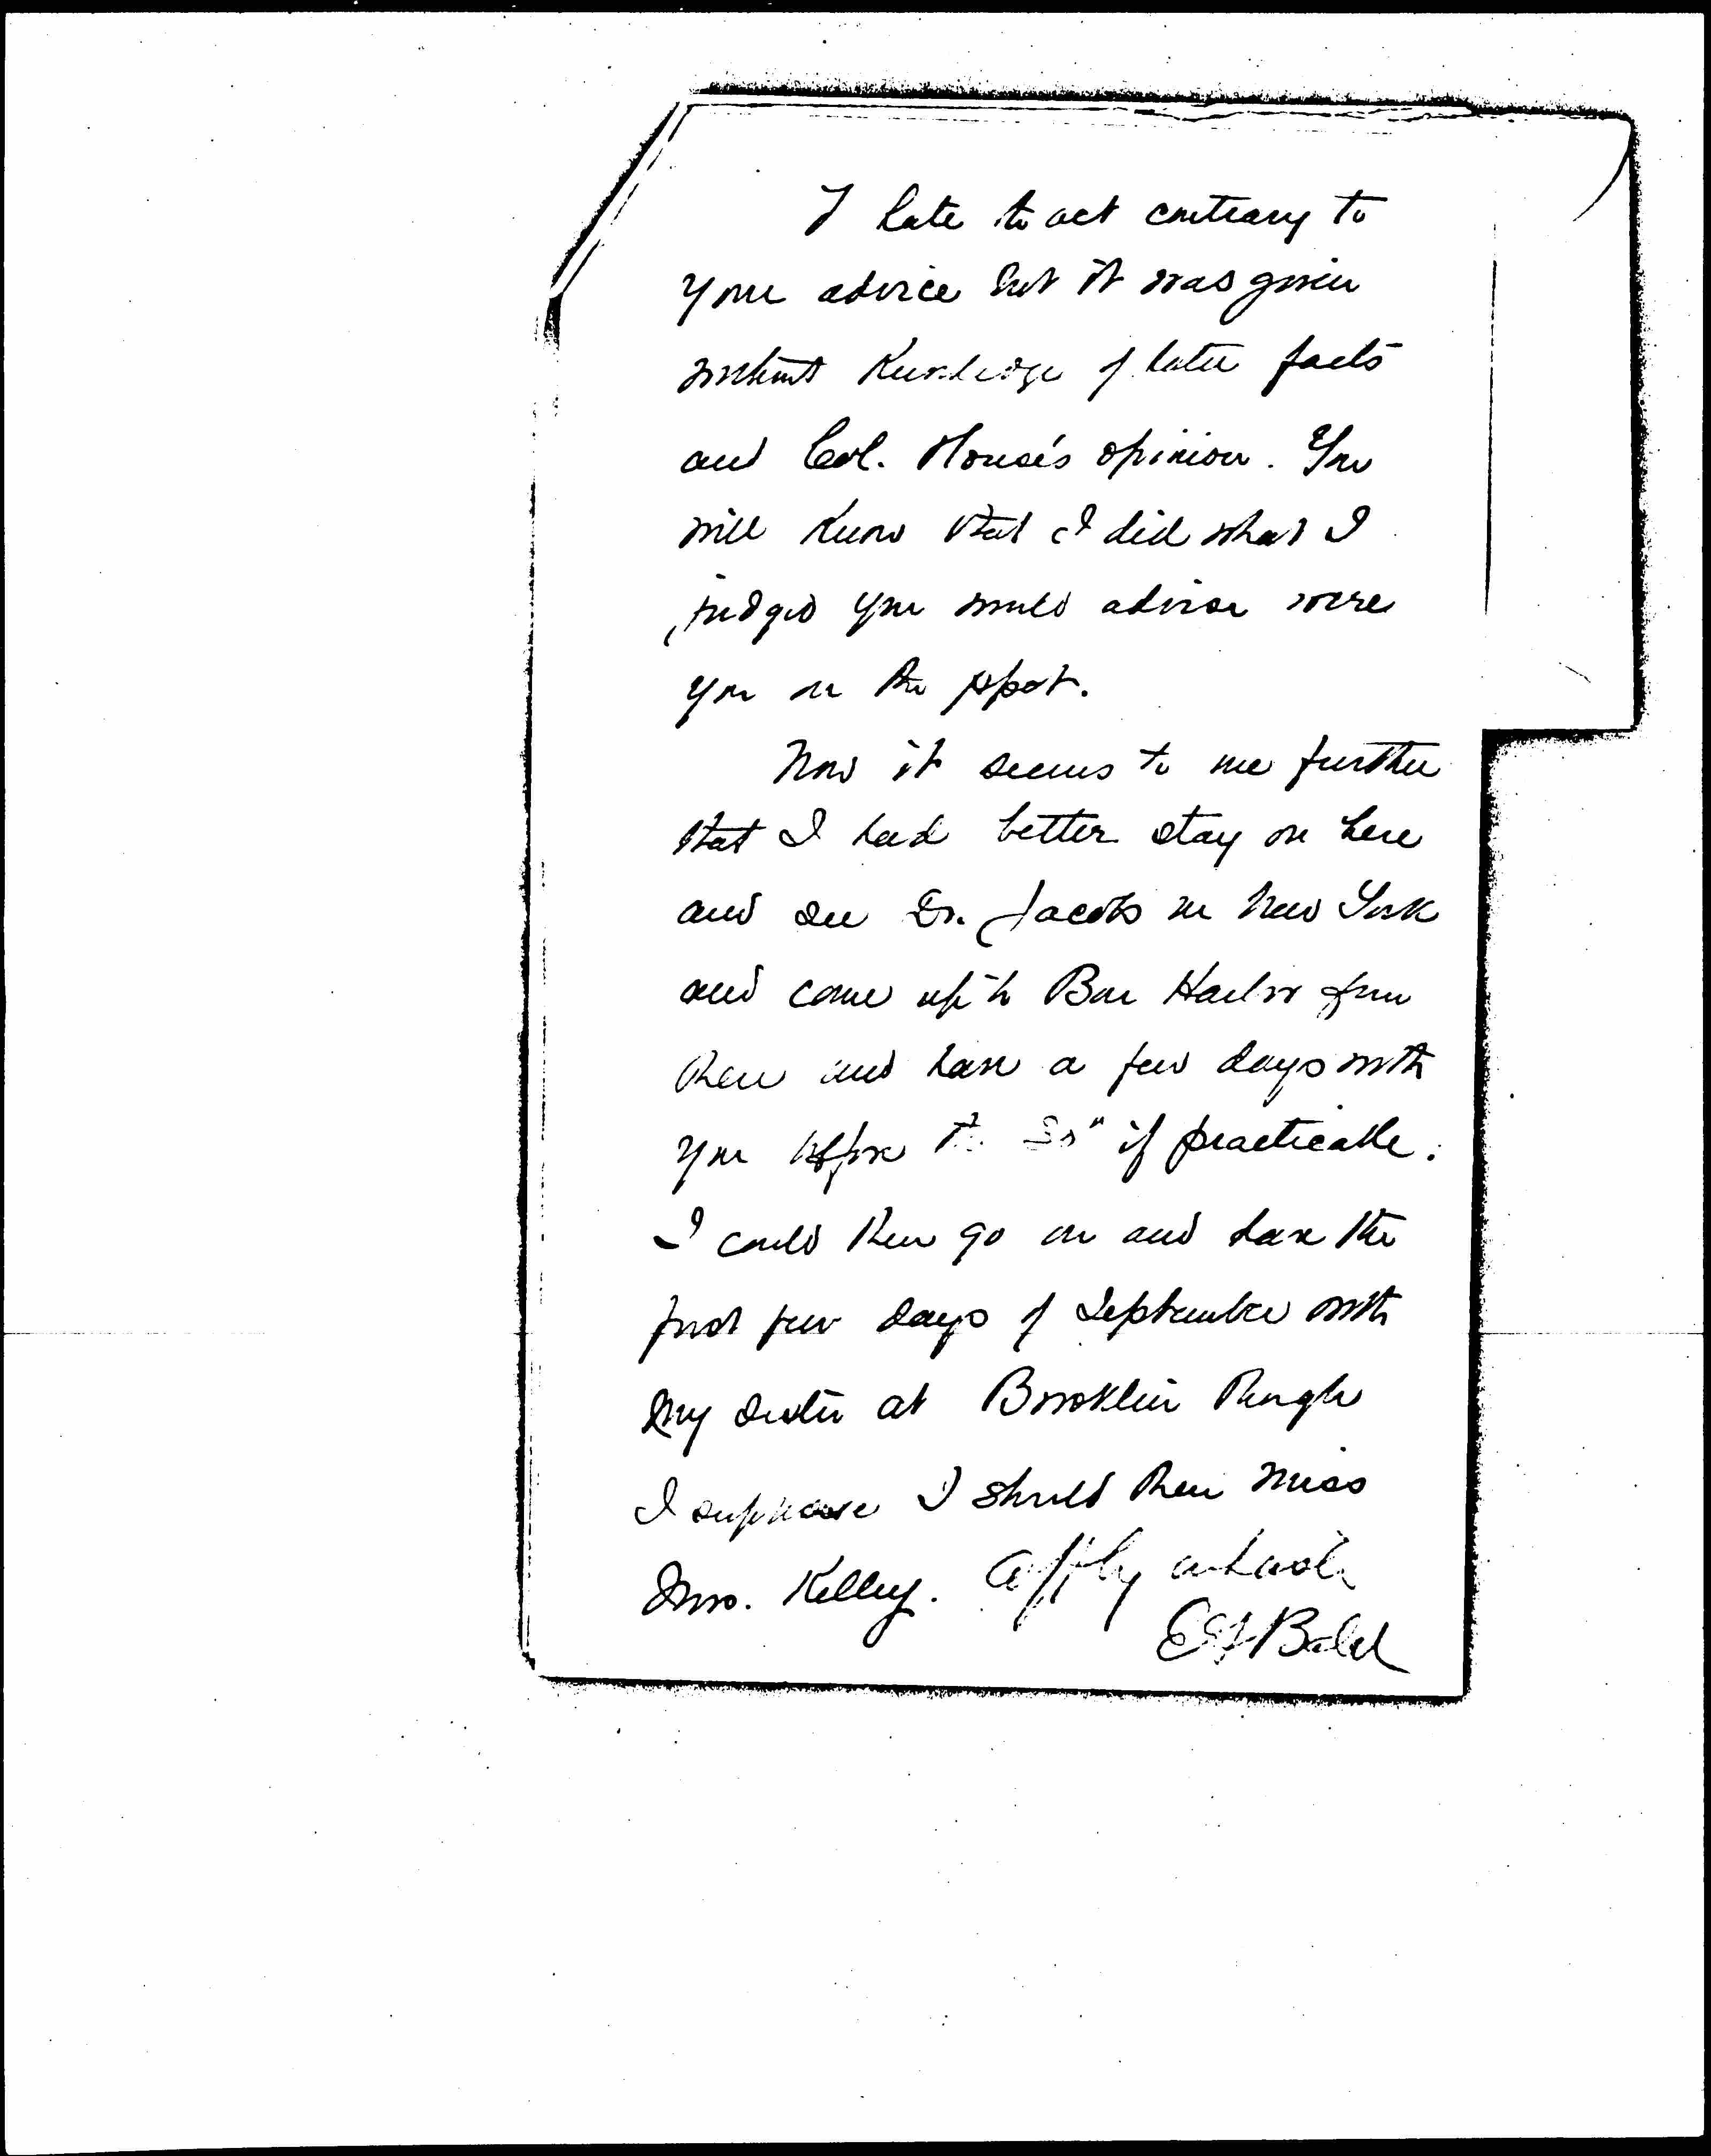 I hate to act contrary to
your advice but it was given
without knowledge of later facts
and Col. House's opinion. You
will know that I did what I
judged you would advise were
you on the spot.
Now it seems to me further
that I had better stay on here
and see Dr. Jacobs in New York
and come up to Bar Harbor from
there and have a few days with
you before the if practicable.
I could then go on and have the
first few days of September with
my sister at Brooklin though
I suppose I should then miss
Mrs. Kelley. Affly